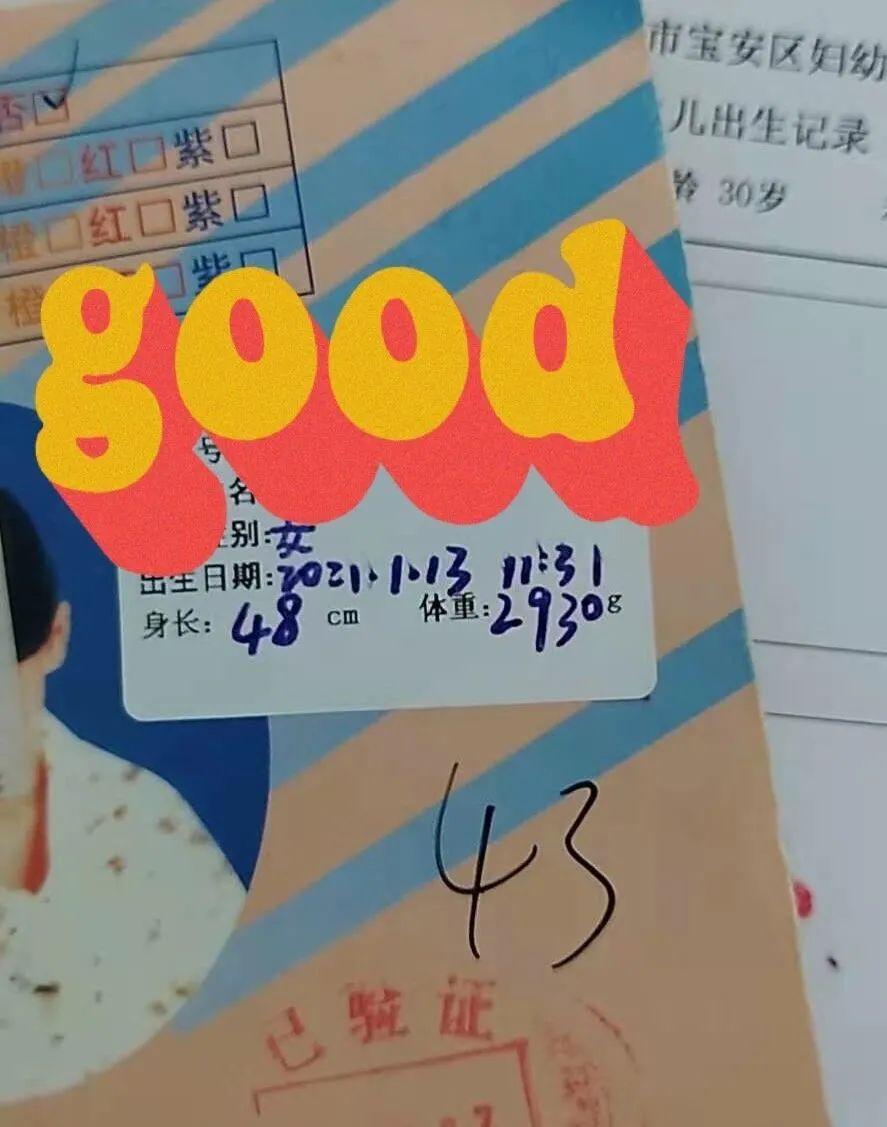 否☑
橙□红□紫□
橙□红□紫□
橙 □紫□
good
号
名
性别:女
出生日期:2021.1.13 11:31
身长: 48 cm 体重:2930g
43
已验证
市宝安区妇幼
儿出生记录
龄 30岁